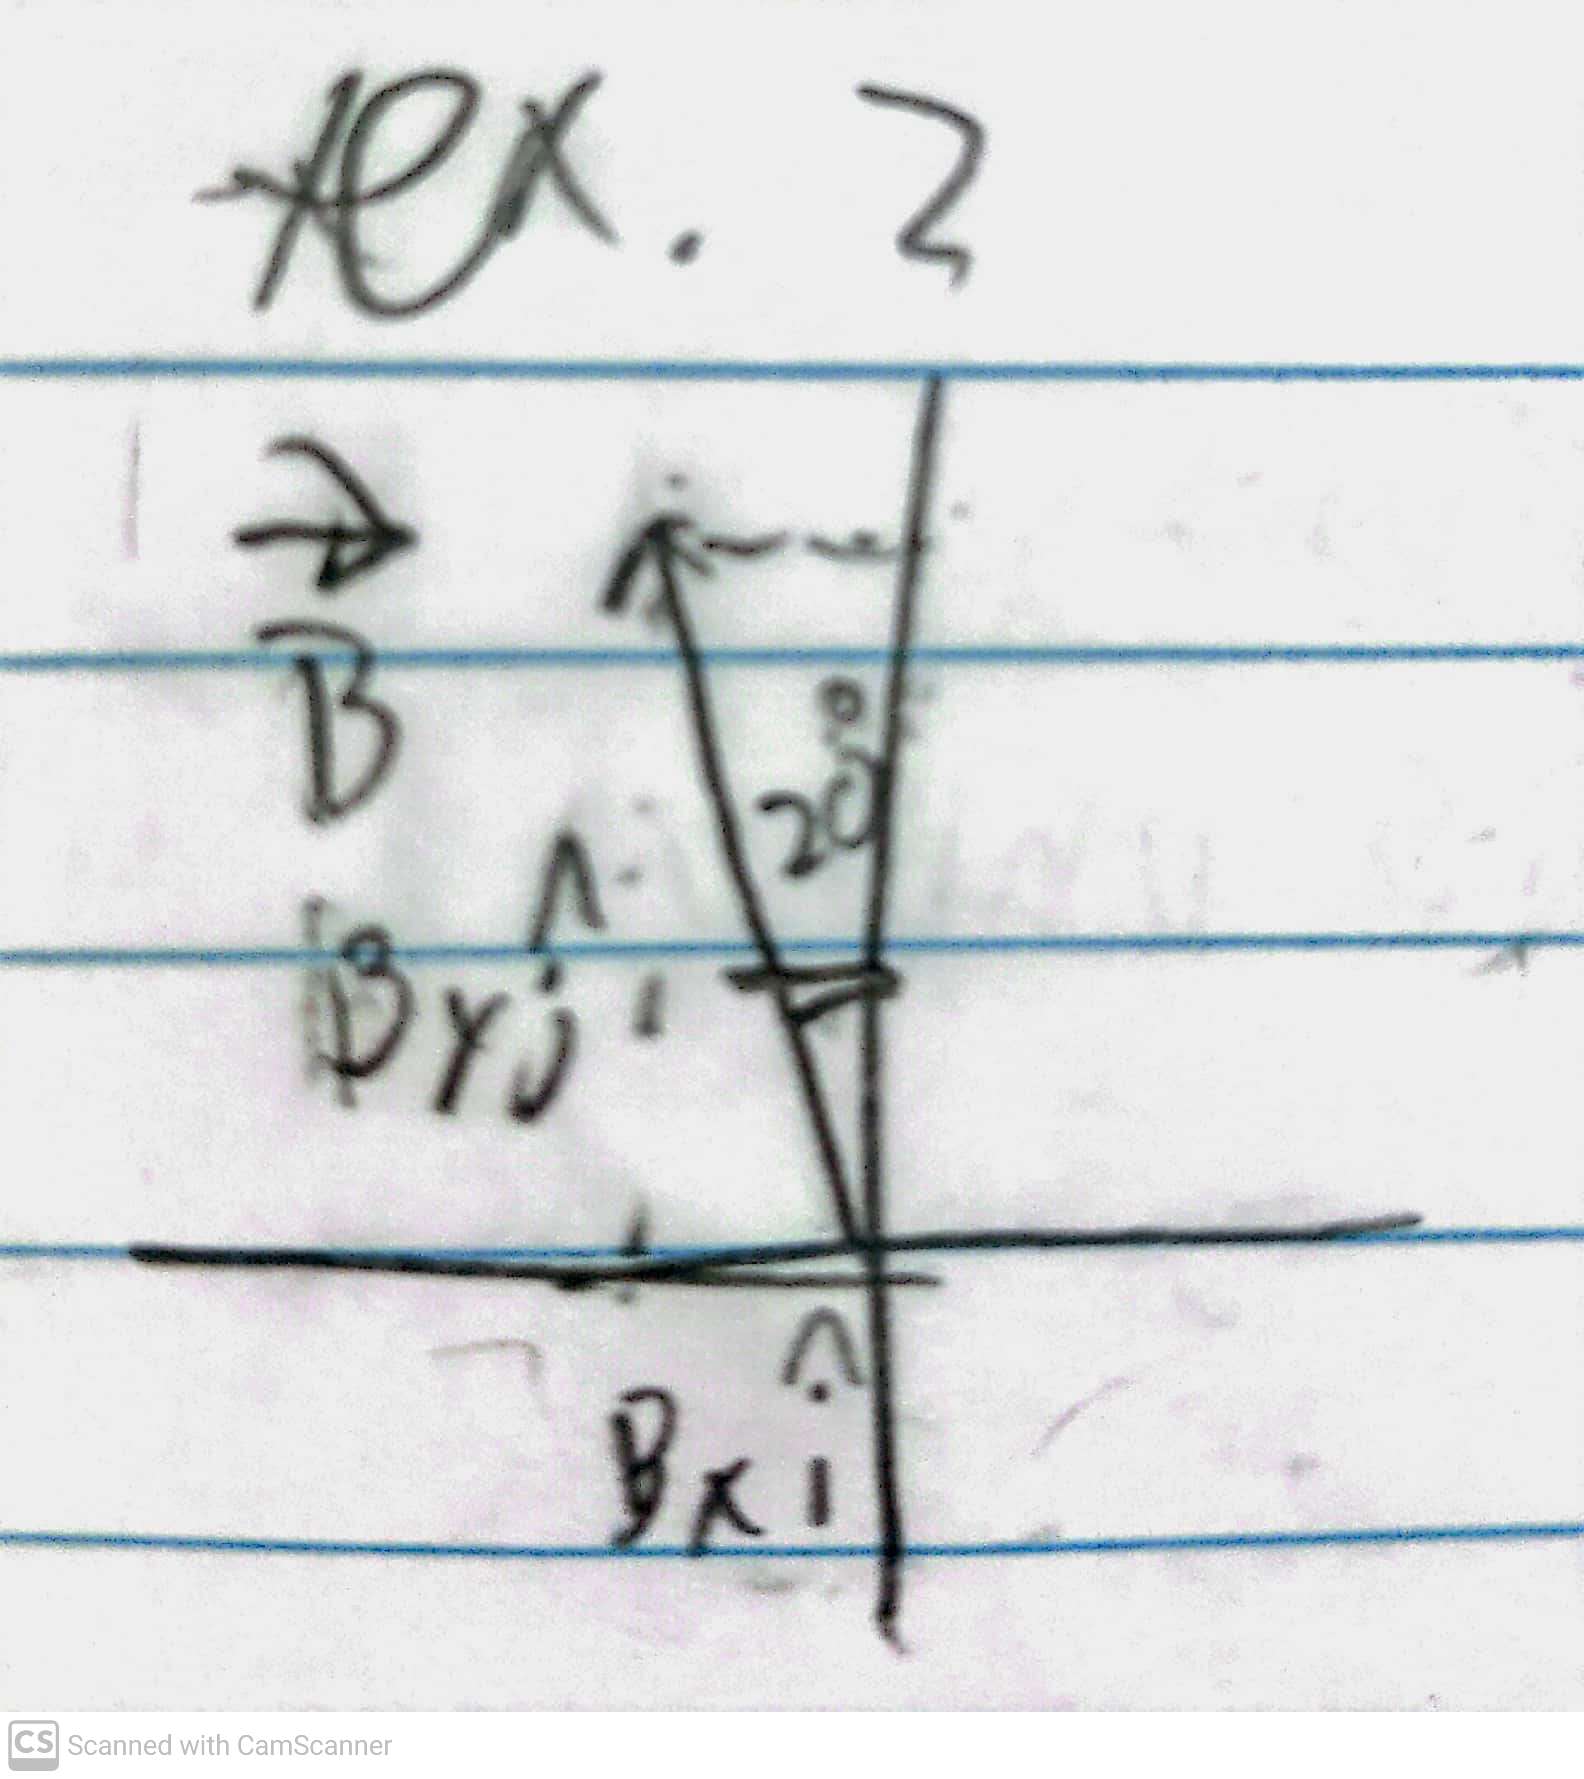 *ex. 2
B⃗
20°
By ĵ
Bx î
CS Scanned with CamScanner